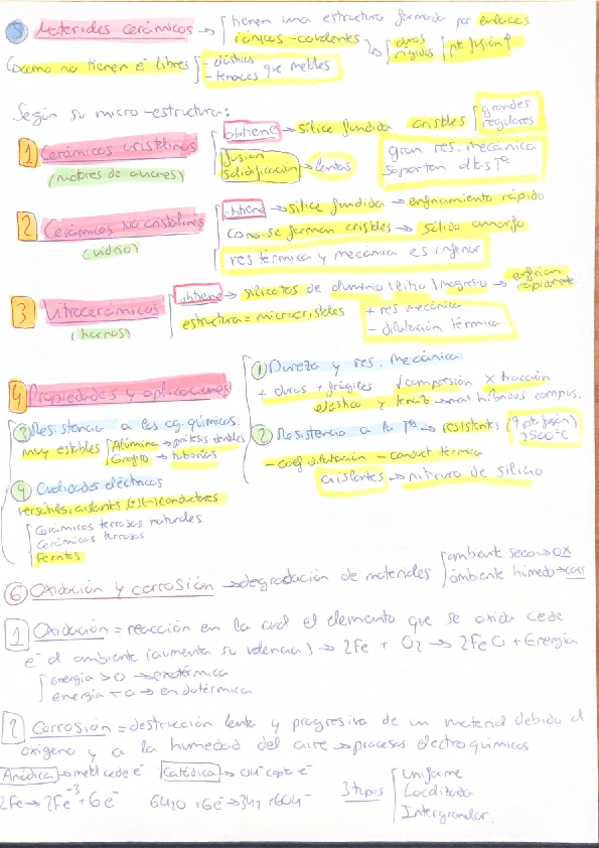 5 Materiales cerámicos → tienen una estructura formada por enlaces
iónicos-covalentes → duros rígidos pto fusión ↑
Como no tienen e⁻ libres - elásticos
- tenaces que metales
Según su micro-estructura:
1 Cerámicos cristalinos
(motores de aviones)
obtiene → sílice fundida cristales grandes regulares
fusión solidificación → lentas
gran res. mecánica
soportan altas Tª
2 Cerámicos no cristalinos
(vidrio)
obtiene → sílice fundida → enfriamiento rápido
como se forman cristales → sólido amorfo
res térmica y mecánica es inferior
3 Vitrocerámicos
(hornos)
obtiene → silicatos de aluminio / litio / magnesio → enfrian rápidamente
estructura = microcristales
+ res mecánica
- dilatación térmica
4 Propiedades y aplicaciones
1 Dureza y res. mecánica
+ duros + frágiles √ compresión X tracción
elástica y → mat híbridos compos.
2 Resistencia a la Tª → resistentes (↑ pto fusión)
- coef dilatación - conduct térmica
aislantes → nitruro de silicio
3 Resistencia a los ag. químicos.
muy estables Alúmina → prótesis dentales
Grafito → tuberías
4 Cualidades eléctricas
versátiles, aislantes, (+) (-) conductores
Cerámicos terrosos naturales
cerámicos terrosos
ferritas
6 Oxidación y corrosión → degradación de materiales ambiente seco → ox
ambiente húmedo → corr
1 Oxidación = reacción en la cual el elemento que se oxida cede
e⁻ al ambiente (aumenta su valencia) → 2Fe + O₂ → 2FeO + Energía
energía > 0 → exotérmica
energía < 0 → endotérmica
2 Corrosión = destrucción lenta y progresiva de un material debido al
oxígeno y a la humedad del aire → procesos electroquímicos
Anódica → metal cede e⁻ Catódica → OH⁻ capta e⁻
2Fe → 2Fe⁻³ + 6e⁻ 6H₂O + 6e⁻ → 3H₂ + 6OH⁻
3 tipos Uniforme
Localizada
Intergranular.